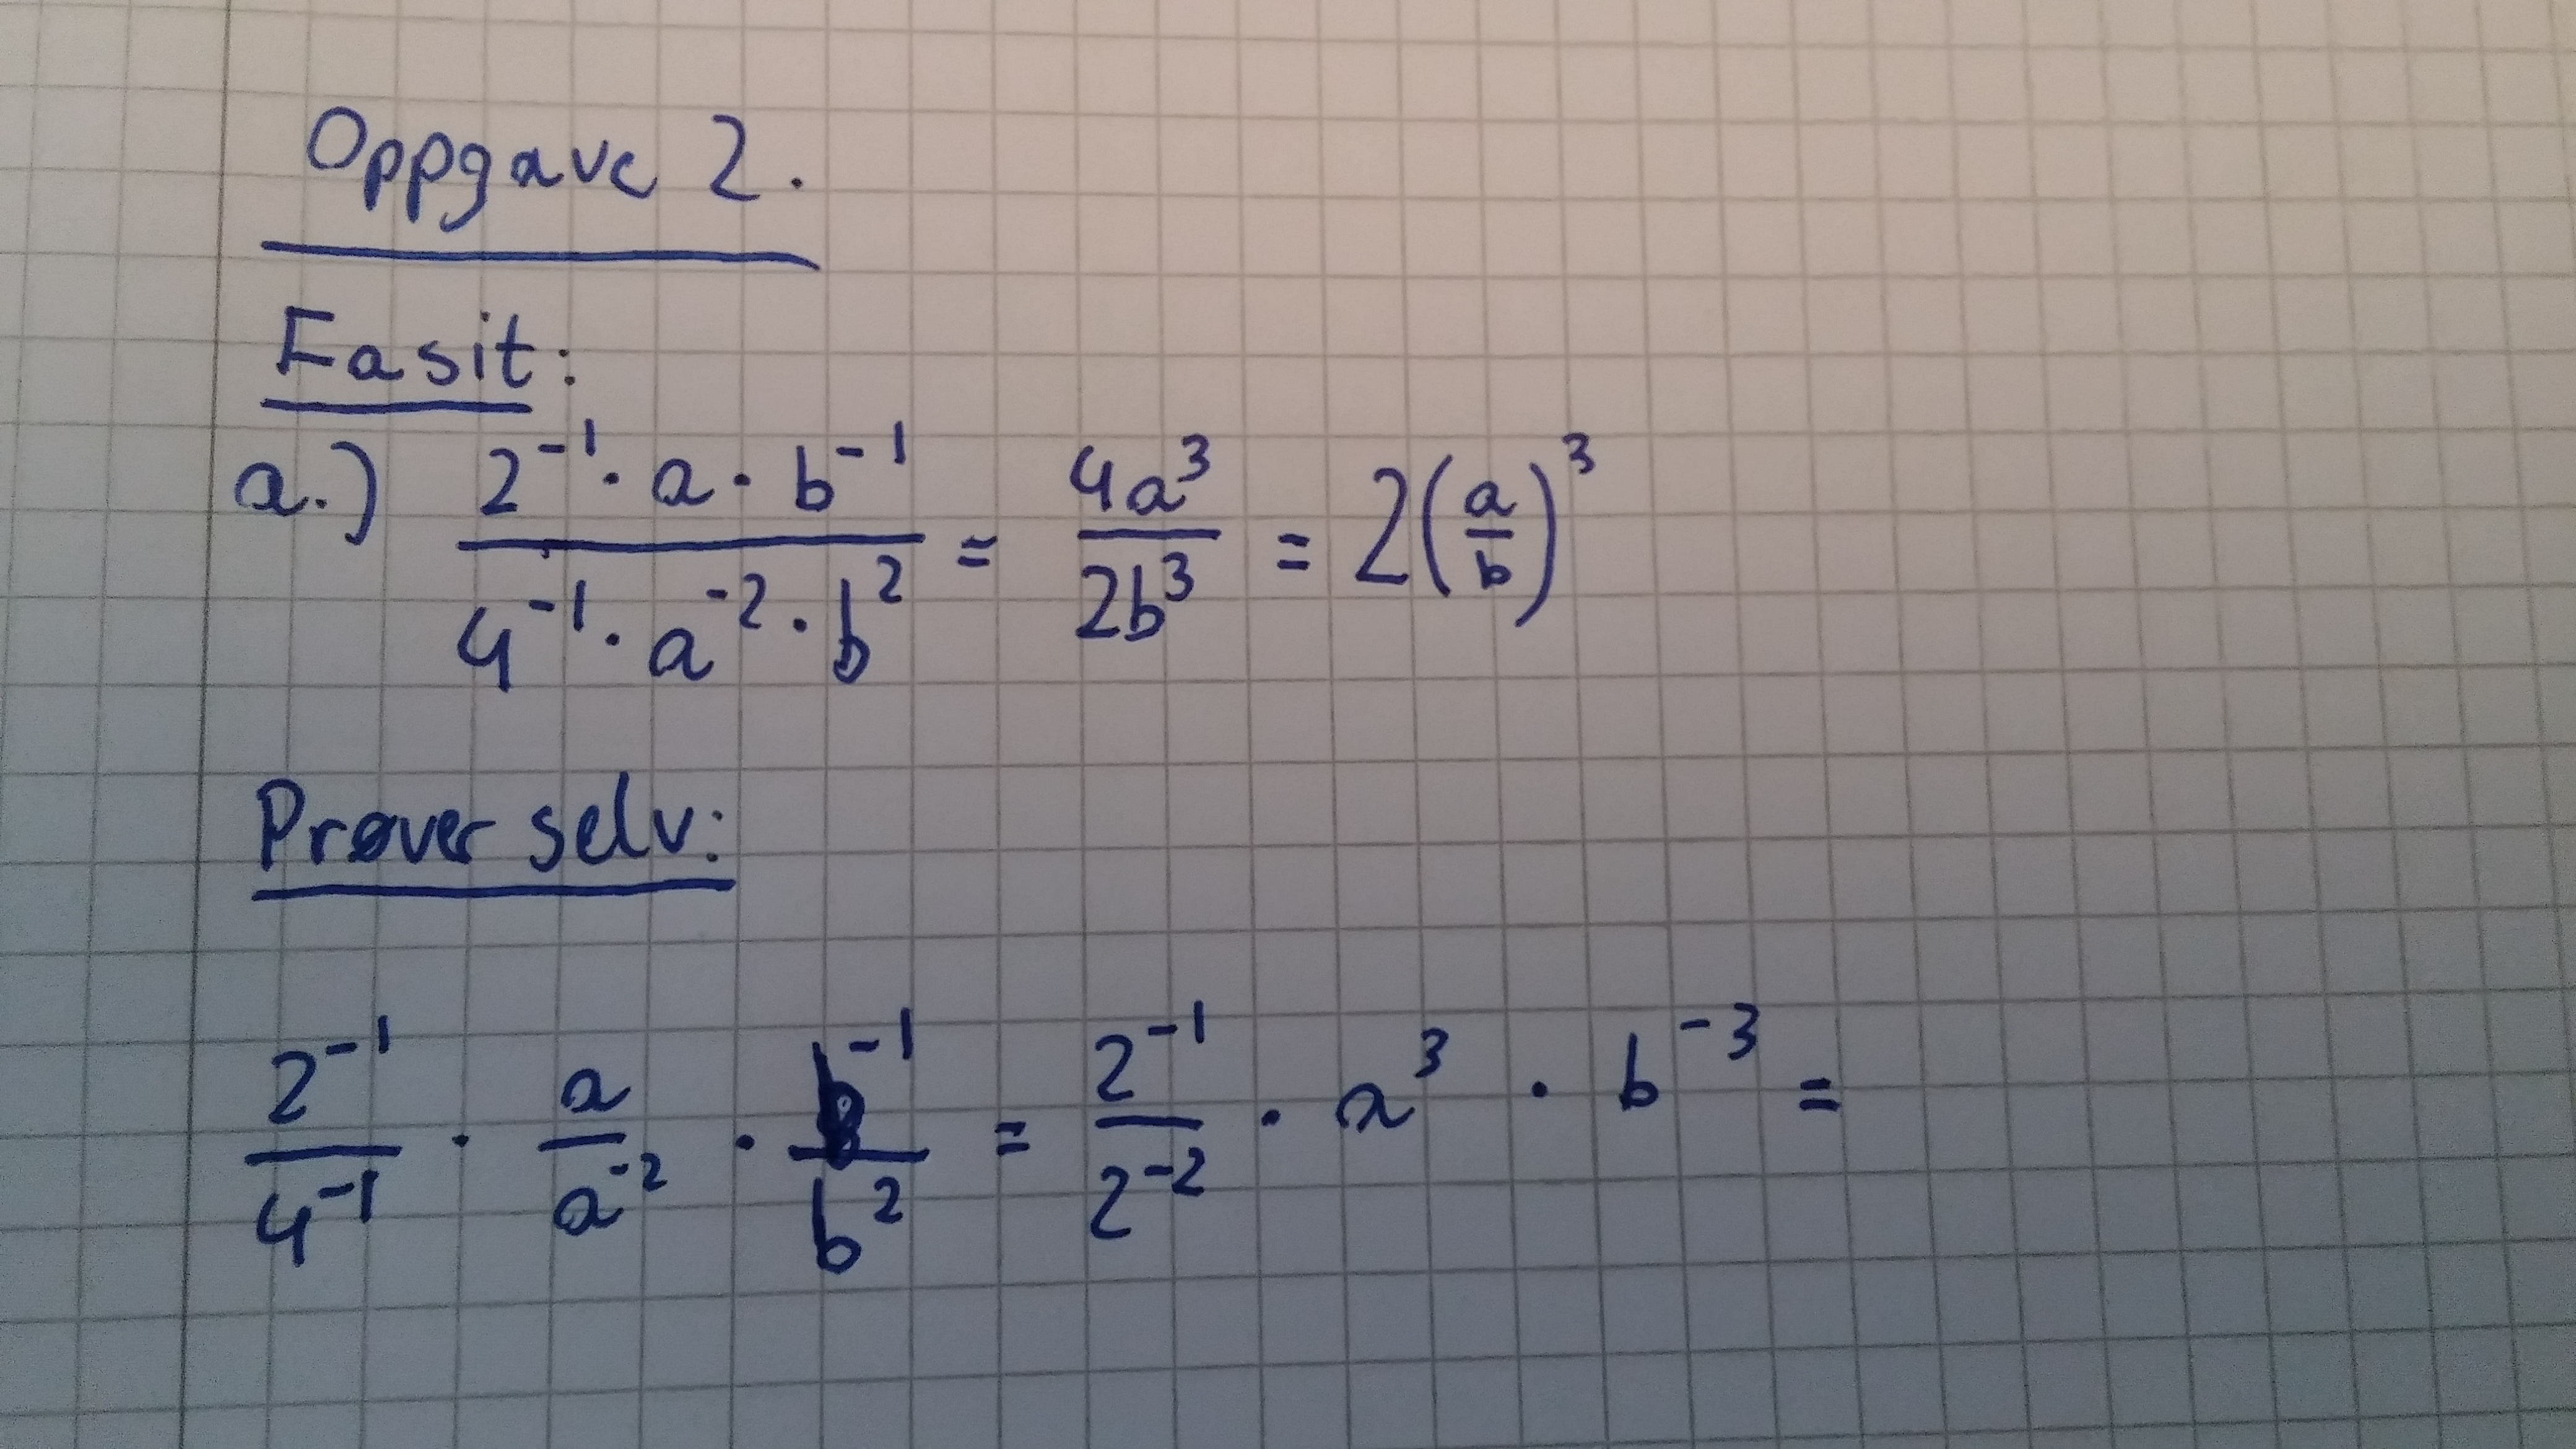 Oppgave 2.
Fasit:
a.) (2⁻¹ · a · b⁻¹)/(4⁻¹ · a⁻² · b²) = 4a³/2b³ = 2(a/b)³
Prøver selv:
2⁻¹/4⁻¹ · a/a⁻² · b⁻¹/b² = 2⁻¹/2⁻² · a³ · b⁻³ =